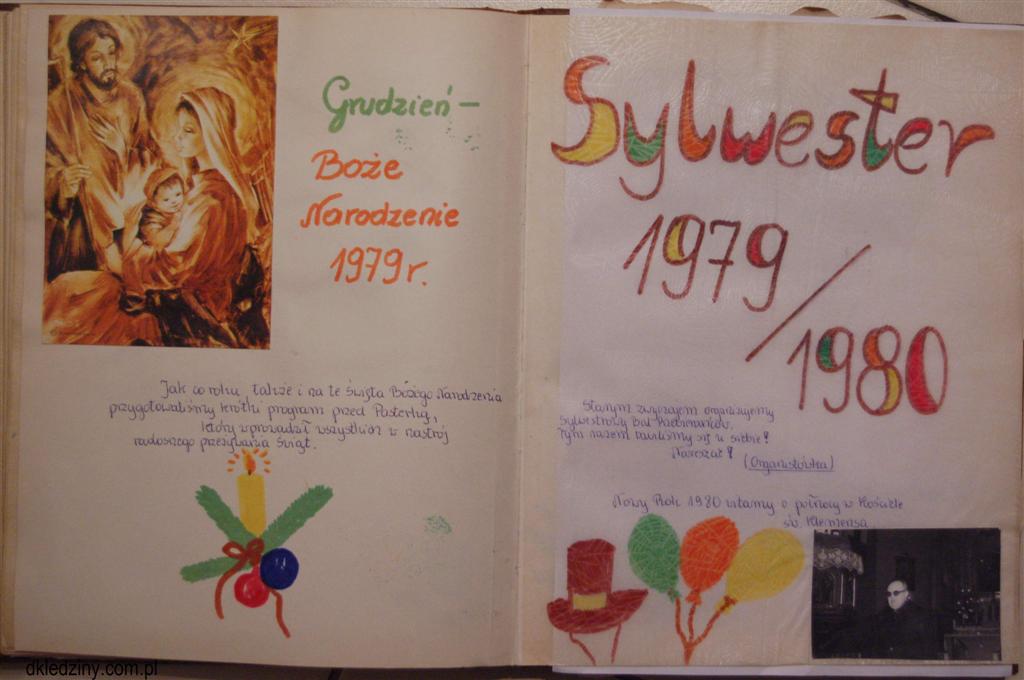 Grudzień –
Boże
Narodzenie
1979 r.
Jak co roku, także i na te święta Bożego Narodzenia
przygotowaliśmy krótki program przed Pasterką,
który wprowadził wszystkich w nastrój
radosnego przeżywania świąt.
Sylwester
1979/
1980
Starym zwyczajem organizujemy
Sylwestrowy Bal
Tym razem bawiliśmy się u siebie!
Nareszcie!
(Organistówka)
Nowy Rok 1980 witamy o północy w Kościele
św. Klemensa.
dkledziny.com.pl